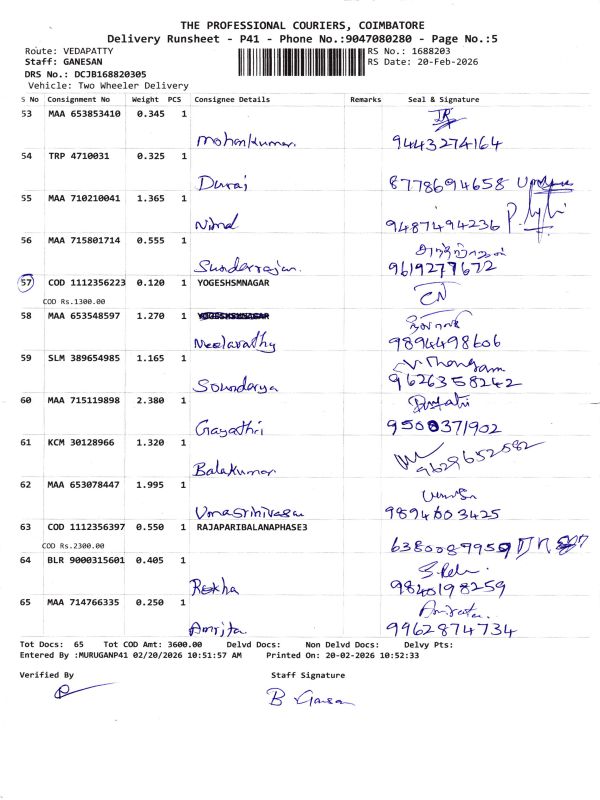 THE PROFESSIONAL COURIERS, COIMBATORE
Delivery Runsheet - P41 - Phone No.:9047080280 - Page No.:5
Route: VEDAPATTY RS No.: 1688203
Staff: GANESAN RS Date: 20-Feb-2026
DRS No.: DCJB168820305
Vehicle: Two Wheeler Delivery
S No Consignment No Weight PCS Consignee Details Remarks Seal & Signature
53 MAA 653853410 0.345 1
Mohankumar 9443274164
54 TRP 4710031 0.325 1
Durai 8778694658
55 MAA 710210041 1.365 1
9487494236
56 MAA 715801714 0.555 1
Sunderrajan 9619277672
57 COD 1112356223 0.120 1 YOGESHSMNAGAR
COD Rs.1300.00
58 MAA 653548597 1.270 1
Neelavathy 9894498606
59 SLM 389654985 1.165 1
V. Thangam
Soundarya 9626358242
60 MAA 715119898 2.380 1
Gayathri 9500371902
61 KCM 30128966 1.320 1
Balakumar 9629652582
62 MAA 653078447 1.995 1
Umasrinivasan 9894603425
63 COD 1112356397 0.550 1 RAJAPARIBALANAPHASE3
COD Rs.2300.00 6380087959
64 BLR 9000315601 0.405 1
Rekha 9840198259
65 MAA 714766335 0.250 1
Amrita 9962874734
Tot Docs: 65 Tot COD Amt: 3600.00 Delvd Docs: Non Delvd Docs: Delvy Pts:
Entered By :MURUGANP41 02/20/2026 10:51:57 AM Printed On: 20-02-2026 10:52:33
Verified By Staff Signature